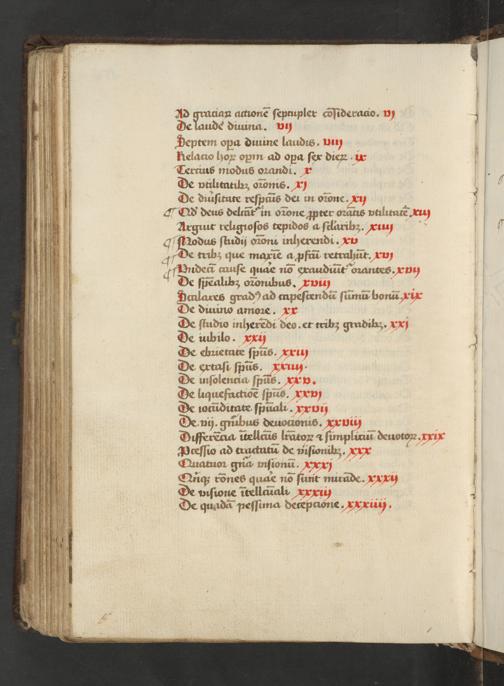 Ad graciaꝝ actionē septuplex cōsideracio. vi
De laude diuina. vii
Septem oꝑa diuine laudis. viii
Relacio hoꝝ oꝑm ad oꝑa sex dieꝝ. ix
Tercius modus orandi. x
De vtilitatibꝫ orōnis. xi
De diūsitate respc̄us dei in orōne. xii
Qd̓ deus delc̄at᷑ in orōne ꝓpter orātis vtilitatē. xiii
Arguit religiosos tepidos a sc̄laribꝫ. xiiii
Modus studii orōni inherendi. xv
De tribꝫ que maxīe a ꝓfcū retrahūt. xvi
Vndecī cause quare nō exaudiūt᷑ orantes. xvii
De sp̄ealibꝫ orōnibus. xviii
Scalares gradꝰ ad capescendū sūmū bonū. xix
De diuino amore. xx
De studio inherēdi deo. et tribꝫ gradibꝫ. xxi
De iubilo. xxii
De ebrietate sp̄us. xxiii
De extasi sp̄us. xxiiii.
De insolencia sp̄us. xxv.
De liquefactiōe sp̄us. xxvi
De iocūditate sp̄uali. xxvii
De. vij. gn̄ibus deuocionis. xxviii
Differēcia ītellc̄us lr̄atoꝝ ⁊ simpliciū deuotoꝝ. xxix
Ꝓcessio ad tractatū de visionibꝫ. xxx
Quatuor gn̄a visionū. xxxi
Qn̄qꝫ rōnes quare nō sunt mirāde. xxxii
De visione ītellc̄uali xxxiii
De quadā pessima decepcione. xxxiiii.